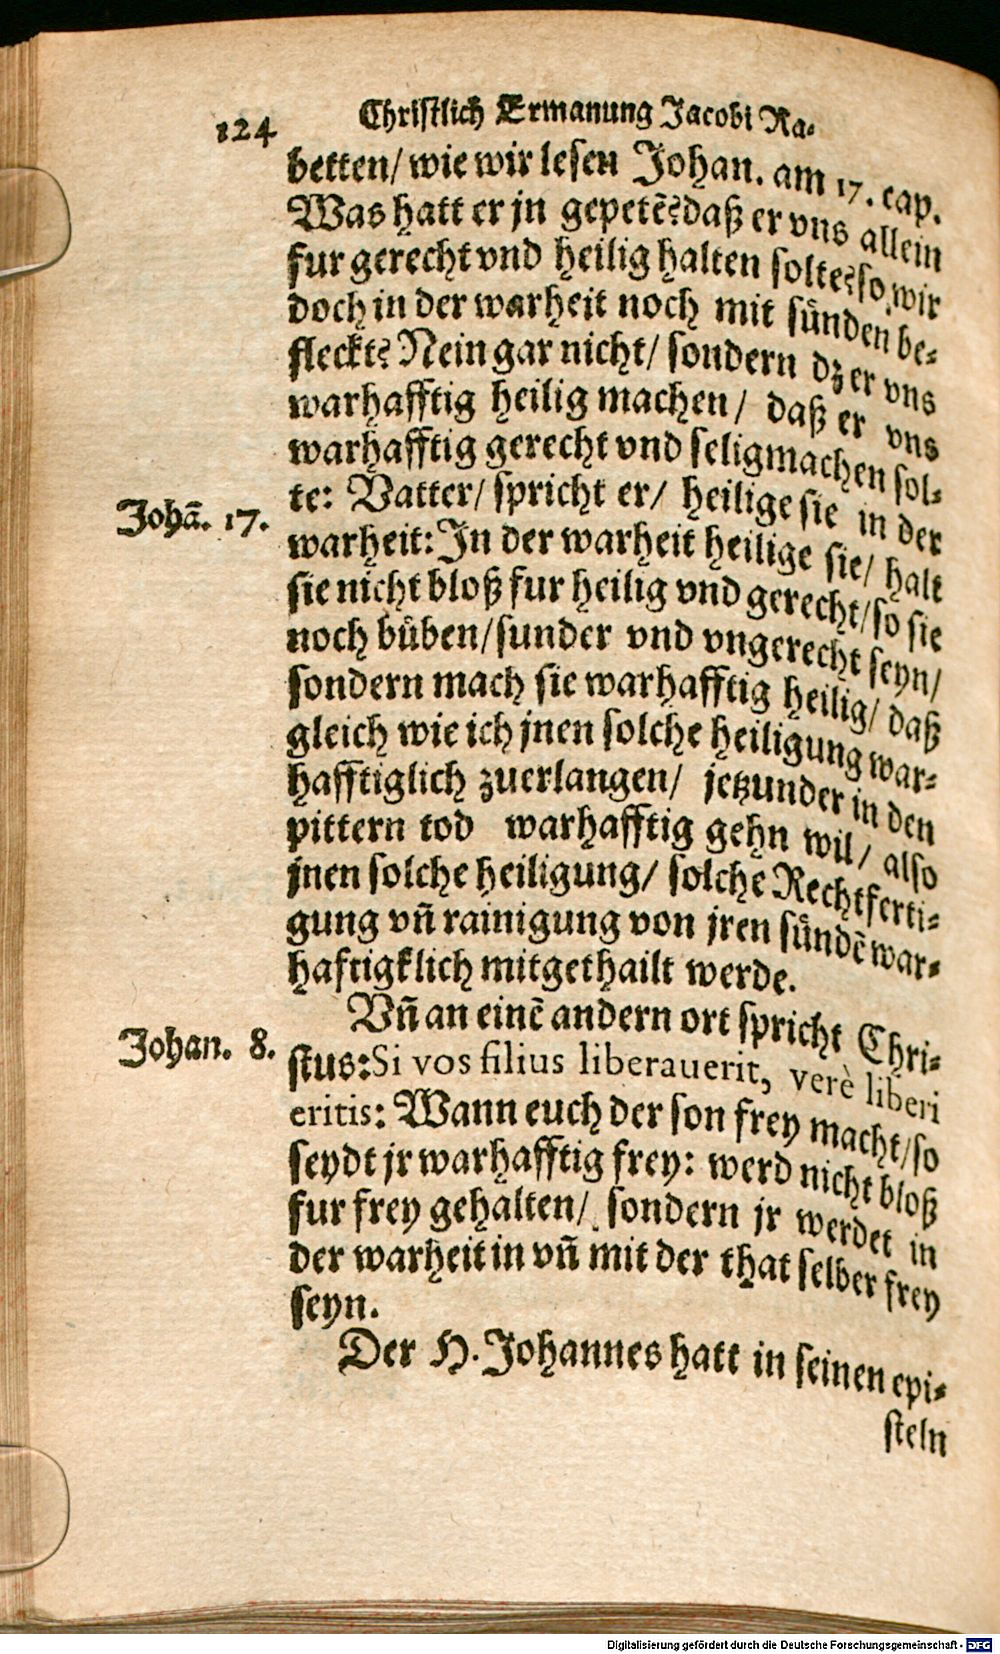 124
Christlich Ermanung Jacobi Ra-
betten/ wie wir lesen Johan. am 17. cap.
Was hatt er jn gepetẽ? daß er vns allein
fur gerecht vnd heilig halten solte? so wir
doch in der warheit noch mit sünden be-
fleckt? Nein gar nicht/ sondern dz er vns
warhafftig heilig machen/ daß er vns
warhafftig gerecht vnd selig machen sol-
te: Vatter/ spricht er/ heilige sie in der
Johã. 17.
warheit: In der warheit heilige sie/ halt
sie nicht bloß fur heilig vnd gerecht/ so sie
noch büben/ sunder vnd vngerecht seyn/
sondern mach sie warhafftig heilig/ daß
gleich wie ich jnen solche heiligung war-
hafftiglich zuerlangen/ jetzunder in den
pittern tod warhafftig gehn wil/ also
jnen solche heiligung/ solche Rechtferti-
gung vñ rainigung von jren sündẽ war-
haftigklich mitgethailt werde.
Vñ an einẽ andern ort spricht Chri-
Johan. 8.
stus: Si vos filius liberauerit, verè liberi
eritis: Wann euch der son frey macht/ so
seydt jr warhafftig frey: werd nicht bloß
fur frey gehalten/ sondern jr werdet in
der warheit in vñ mit der that selber frey
seyn.
Der H. Johannes hatt in seinen epi-
steln
Digitalisierung gefördert durch die Deutsche Forschungsgemeinschaft - DFG